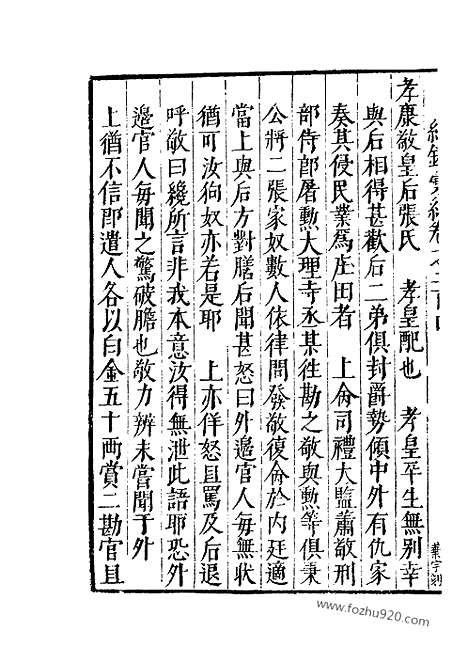 孝康敬皇后張氏　孝皇配也　孝皇平生無別幸
與后相得甚歡后二弟俱封爵勢傾中外有仇家
奏其侵民業爲庄田者　上命司禮大監蕭敬刑
部侍郎屠勳大理寺丞某徃勘之敬與勳等俱秉
公將二張家奴數人依律問發敬復命於内廷適
當上與后方對膳后聞甚怒曰外邉官人每無狀
猶可汝狗奴亦若是耶　上亦佯怒且罵及后退
呼敬曰纔所言非我本意汝得無泄此語耶恐外
邉官人每聞之驚破膽也敬力辨未嘗聞于外
上猶不信卽遣人各以白金五十兩賞二勘官且
www.fozhu920.com